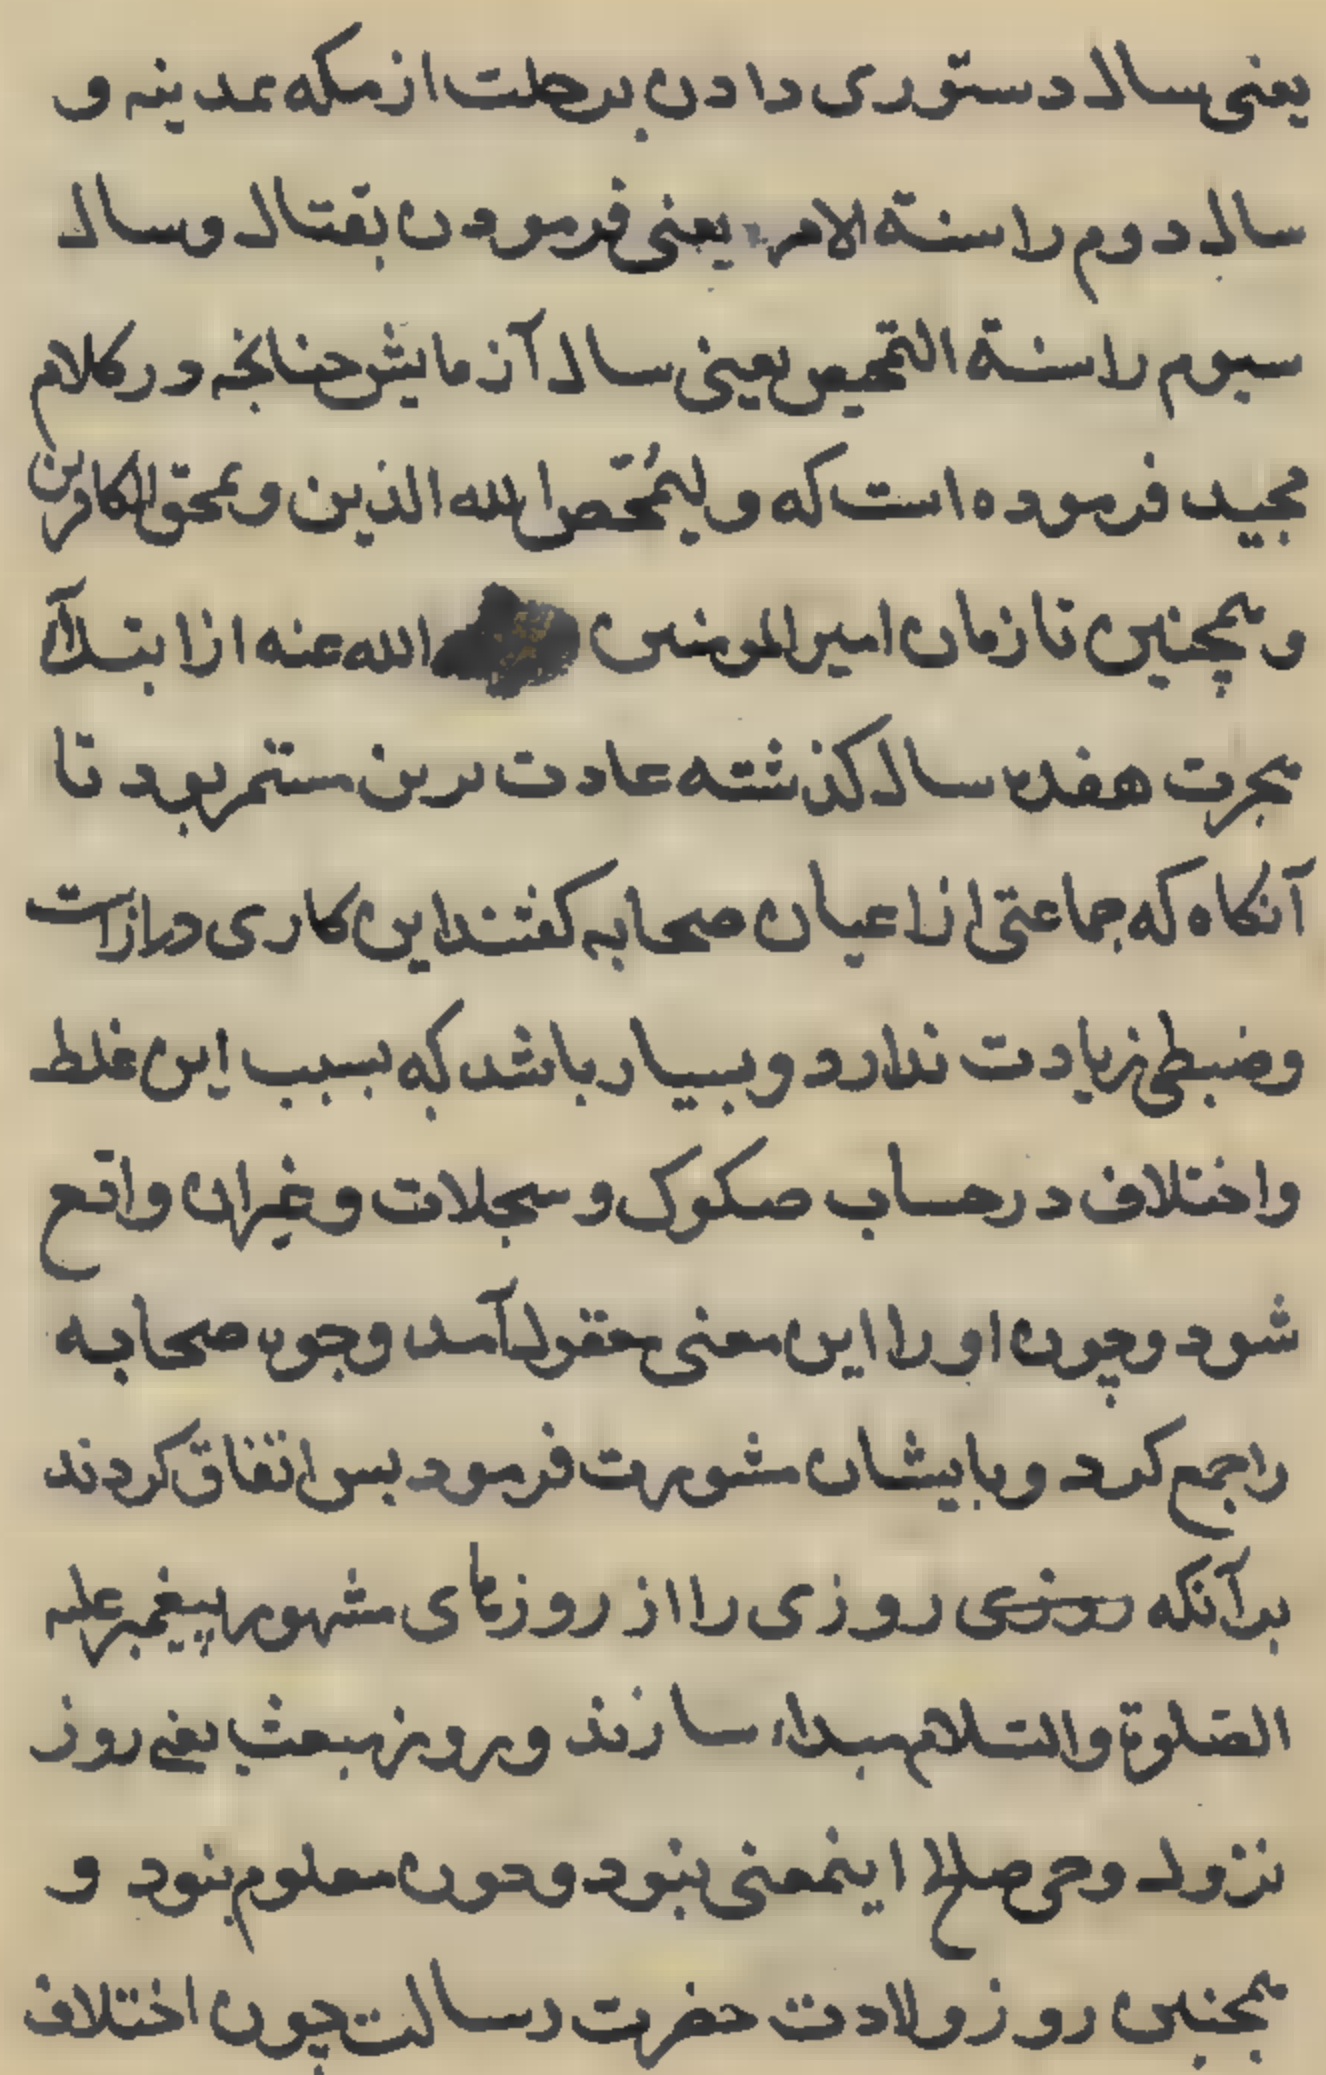 یعنی سال دستوری دادن برحلت از مکه بمدینه و
سال دوم را سنة الامر یعنی فرمودن بقتال و سال
سیوم را سنة التمحیص یعنی سال آزمایش جنانجه در کلام
مجید فرموده است که و لیُمَحّص الله الذین و یمحق الکافرین
و همچنین تا زمان امیر المومنین الله عنه از ابتداء
هجرت هفده سال کذشته عادت برین مستمر بود تا
آنکاه که جماعتی از اعیان صحابه کفتند این کاری دراز است
و ضبطی زیادت ندارد و بسیار باشد که بسبب این غلط
و اختلاف در حساب صکوک و سجلات و غیران واقع
شود و چون او را این معنی معقول آمد وجوه صحابه
را جمع کرد و با یشان مشورت فرمود بس اتفاق کردند
بر آنکه روزی روزی را از روزهای مشهور پیغمبر علیه
الصّلوة و السّلام مبداء سازند و روز مبعث یعنی روز
نزول وحی صالح اینمعنی نبود و چون معلوم نبود و
همجنین روز ولادت حضرت رسالت چون اختلاف